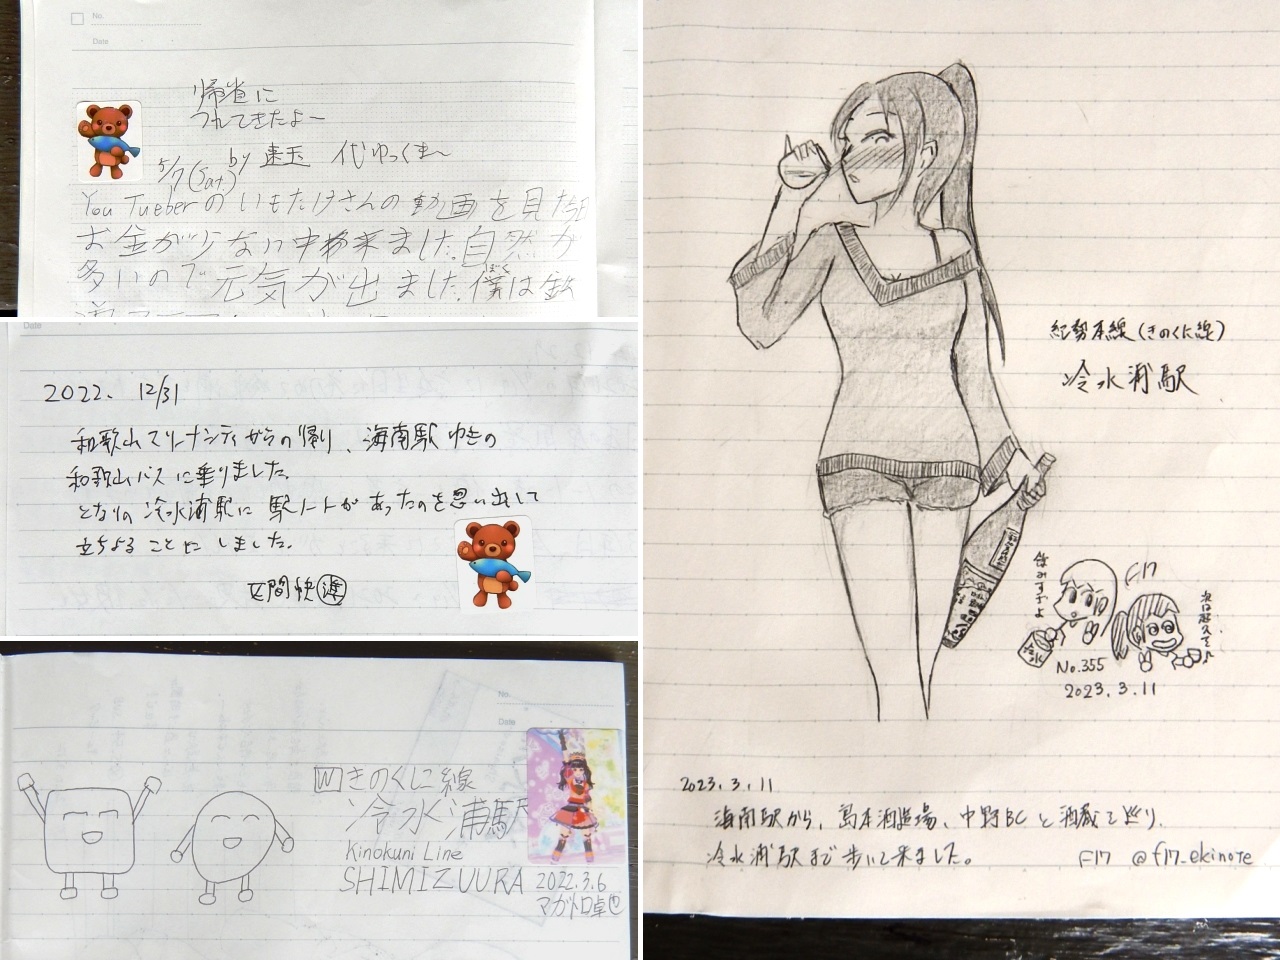 No.
Date
帰省に
つれてきたよ〜
5/7(Sat.) by 代ゆっくま〜
You Tueberのいもたけさんの動画を見た
お金が少ない中 来ました。自然が
多いので元気が出ました。僕は
ぼく
Date
2022. 12/31
和歌山マリーナシティからの帰り、海南駅ゆきの
和歌山バスに乗りました。
となりの冷水浦駅に駅ノートがあったのを思い出して
立ちよることにしました。
区間快速
No.
Date
W きのくに線
冷水浦駅
Kinokuni Line
SHIMIZUURA
2022.3.6
紀勢本線(きのくに線)
冷水浦駅
飲みすぎよ
F17
冷水
No.355
2023.3.11
2023.3.11
海南駅から、島本酒造場、中野BCと酒蔵を巡り、
冷水浦駅まで歩いて来ました。
F17 @f17_ekinote